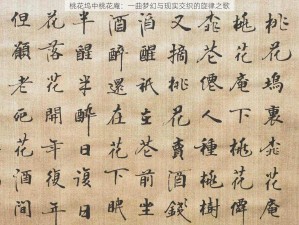 桃花坞中桃花庵：一曲梦幻与现实交织的旋律之歌
桃花塢裏桃花庵
桃花庵下桃花僊
桃花僊人種桃樹
又摘桃花賣酒錢
酒醒只在花前坐
酒醉還在花下眠
半醒半醉日復日
花落花開年復年
但願老死花酒間